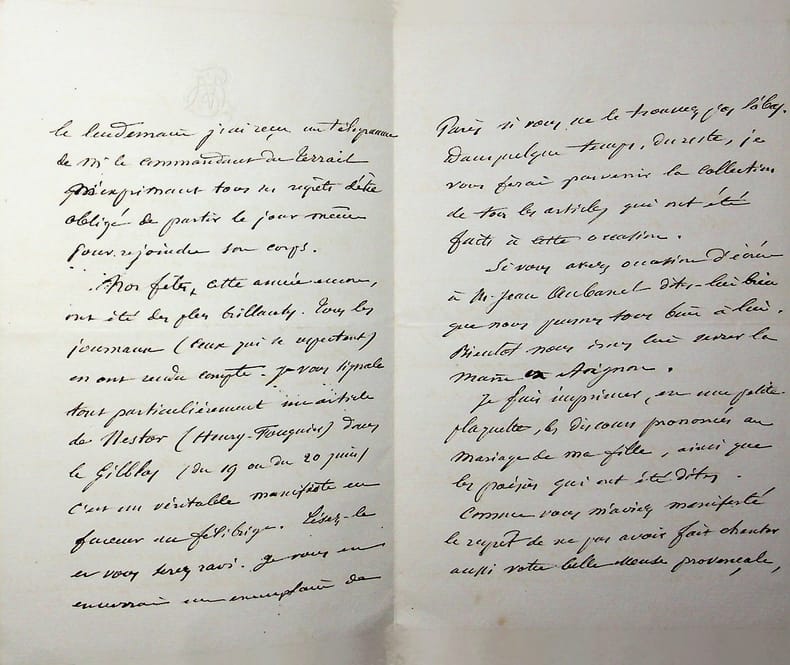 le lendemain j'ai reçu un télégramme
de Mr le commandant du Terrail
m'exprimant tous ses regrets d'être
obligé de partir le jour même
pour rejoindre son corps.
Nos fêtes, cette année encore,
ont été des plus brillantes. Tous les
journaux (ceux qui se respectent)
en ont rendu compte. Je vous signale
tout particulièrement un article
de Nestor (Henry-Fouquier) dans
le Gilblas (du 19 ou du 20 juin)
c'est un véritable manifeste en
faveur du félibrige. Lisez-le
et vous serez ravi. Je vous en
enverrai un exemplaire de
Paris si vous ne le trouvez pas là bas.
Dans quelque temps, du reste, je
vous ferai parvenir la collection
de tous les articles qui ont été
faits à cette occasion.
Si vous avez occasion d'écrire
à M. Jean Aubanel dites-lui bien
que nous pensons tous bien à lui.
Bientôt nous irons lui serrer la
main en Avignon.
Je fais imprimer, en une petite
plaquette, les discours prononcés au
mariage de ma fille, ainsi que
les poésies qui ont été dites.
Comme vous m'aviez manifesté
le regret de ne pas avoir fait chanter
aussi votre belle Muse provençale,